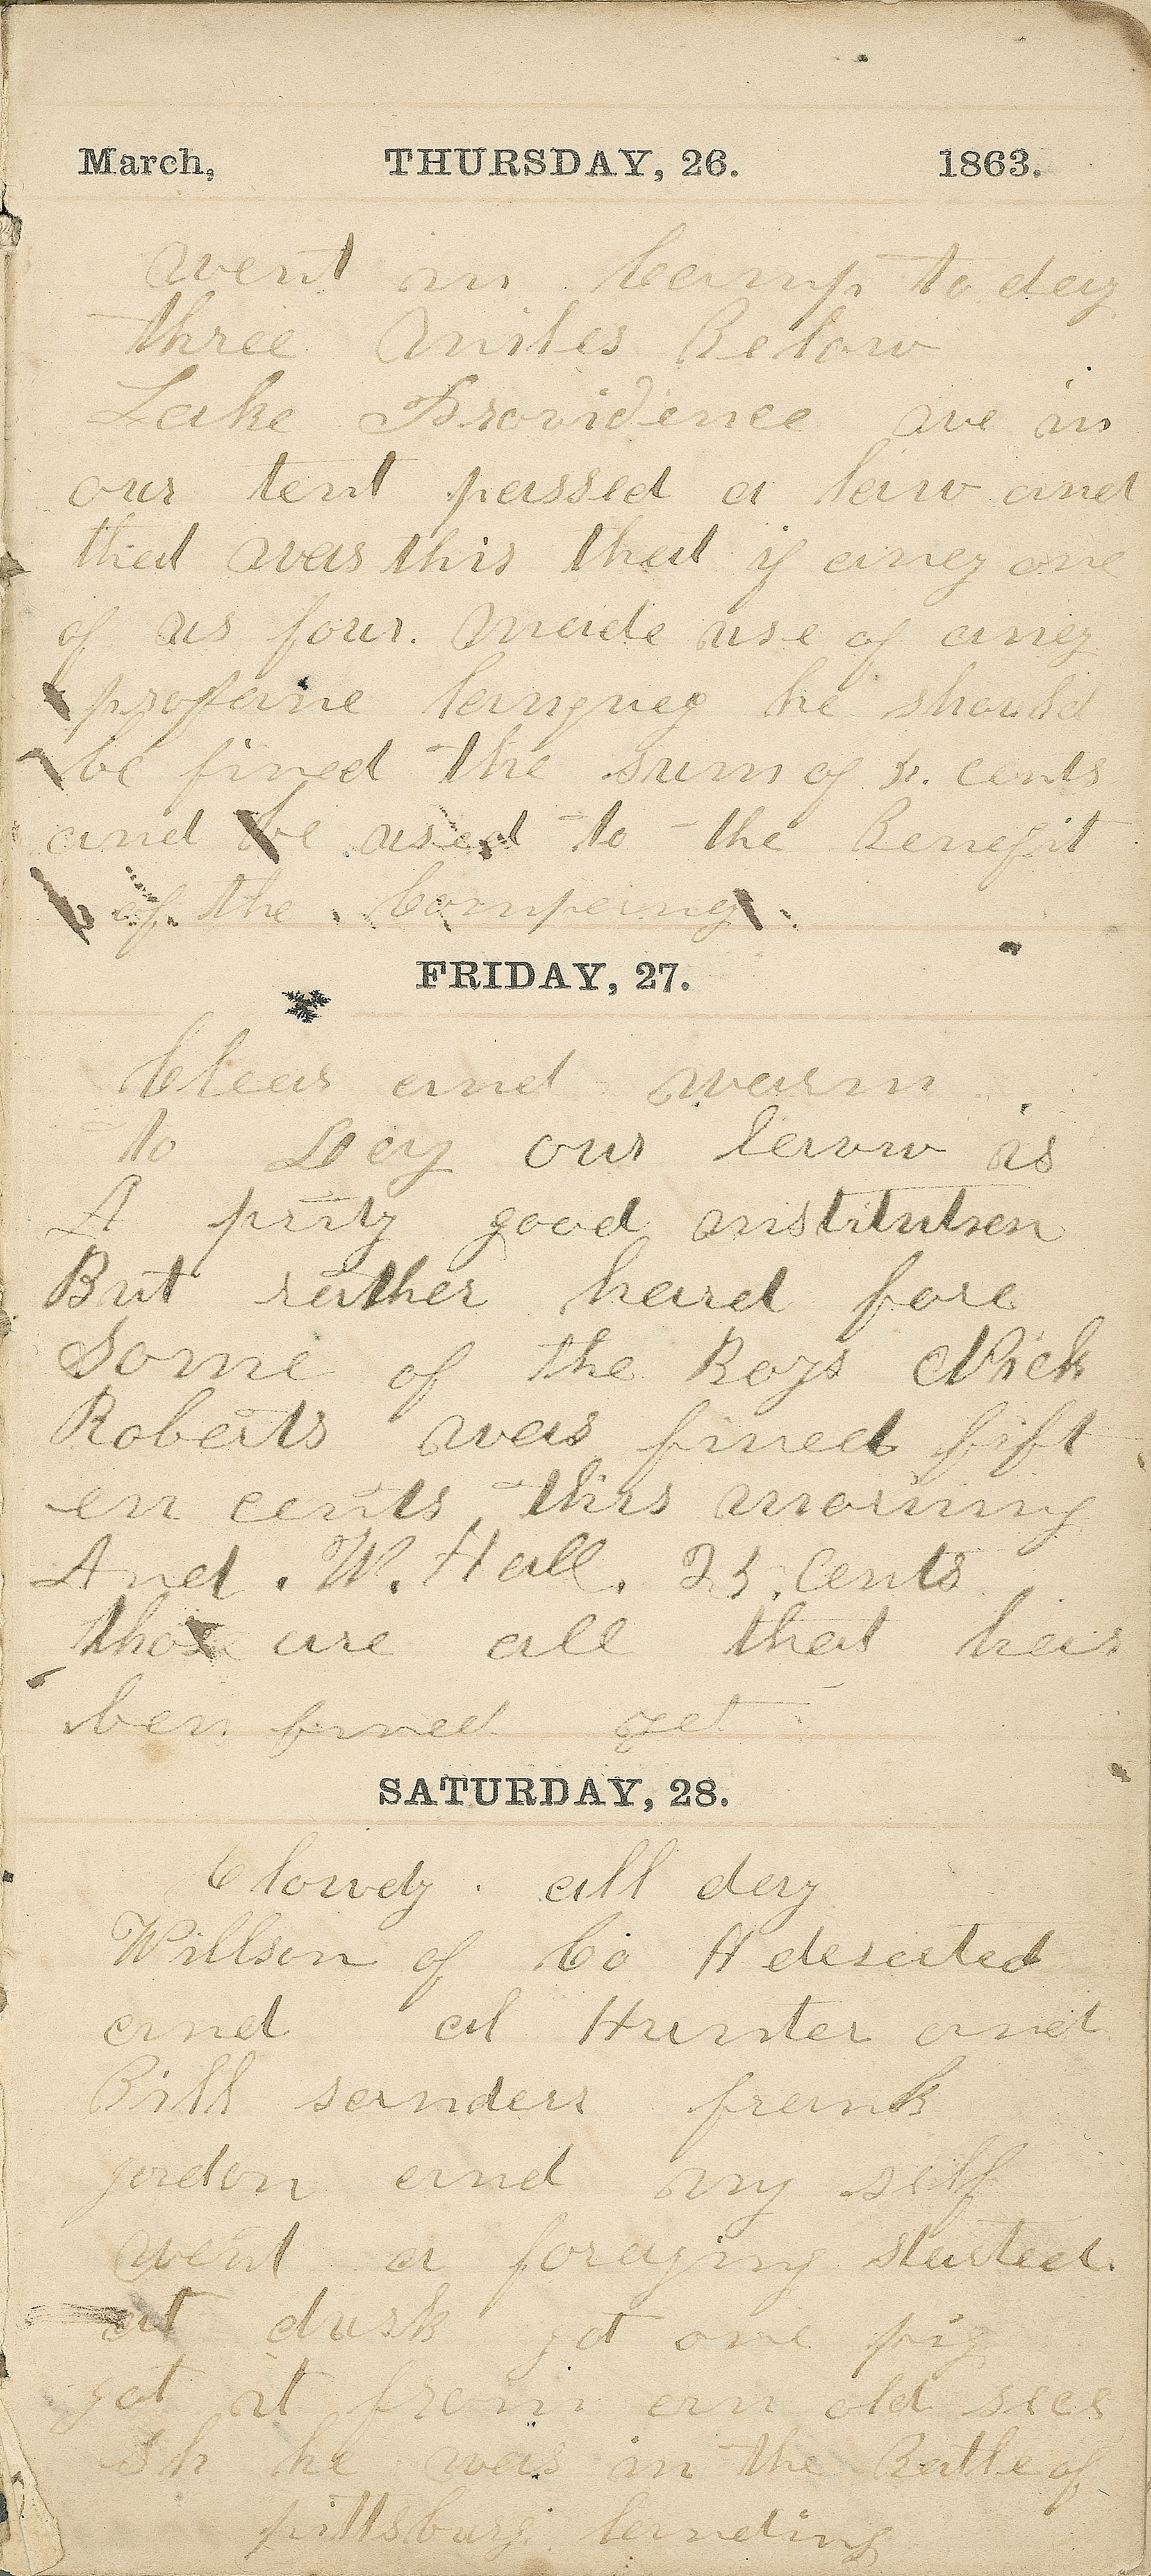 March, THURSDAY, 26. 1863.
went in Camp to day
three miles Below
Lake Providence we in
our tent passed a law and
that was this that if aney one
of us four. made use of aney
profane languag he should
be fined the sum of 5. cents
and be used to the Benefit
of the Companey.
FRIDAY, 27.
Clear and warm
to Day our laww is
A prity good institution
But rather hard fore
Some of the Boys Nick
Roberts was fined fift
en cents this morning
And. W. Hall. 25. Cents
those are all that has
ben fined yet
SATURDAY, 28.
Clowdy. all day
Willson of Co H deserted
and al Hunter and
Bill sanders frank
jordon and my self
went a foraging started.
at dusk got one pig
got it from an old sece
sh he was in the Batle of
pittsburg landing